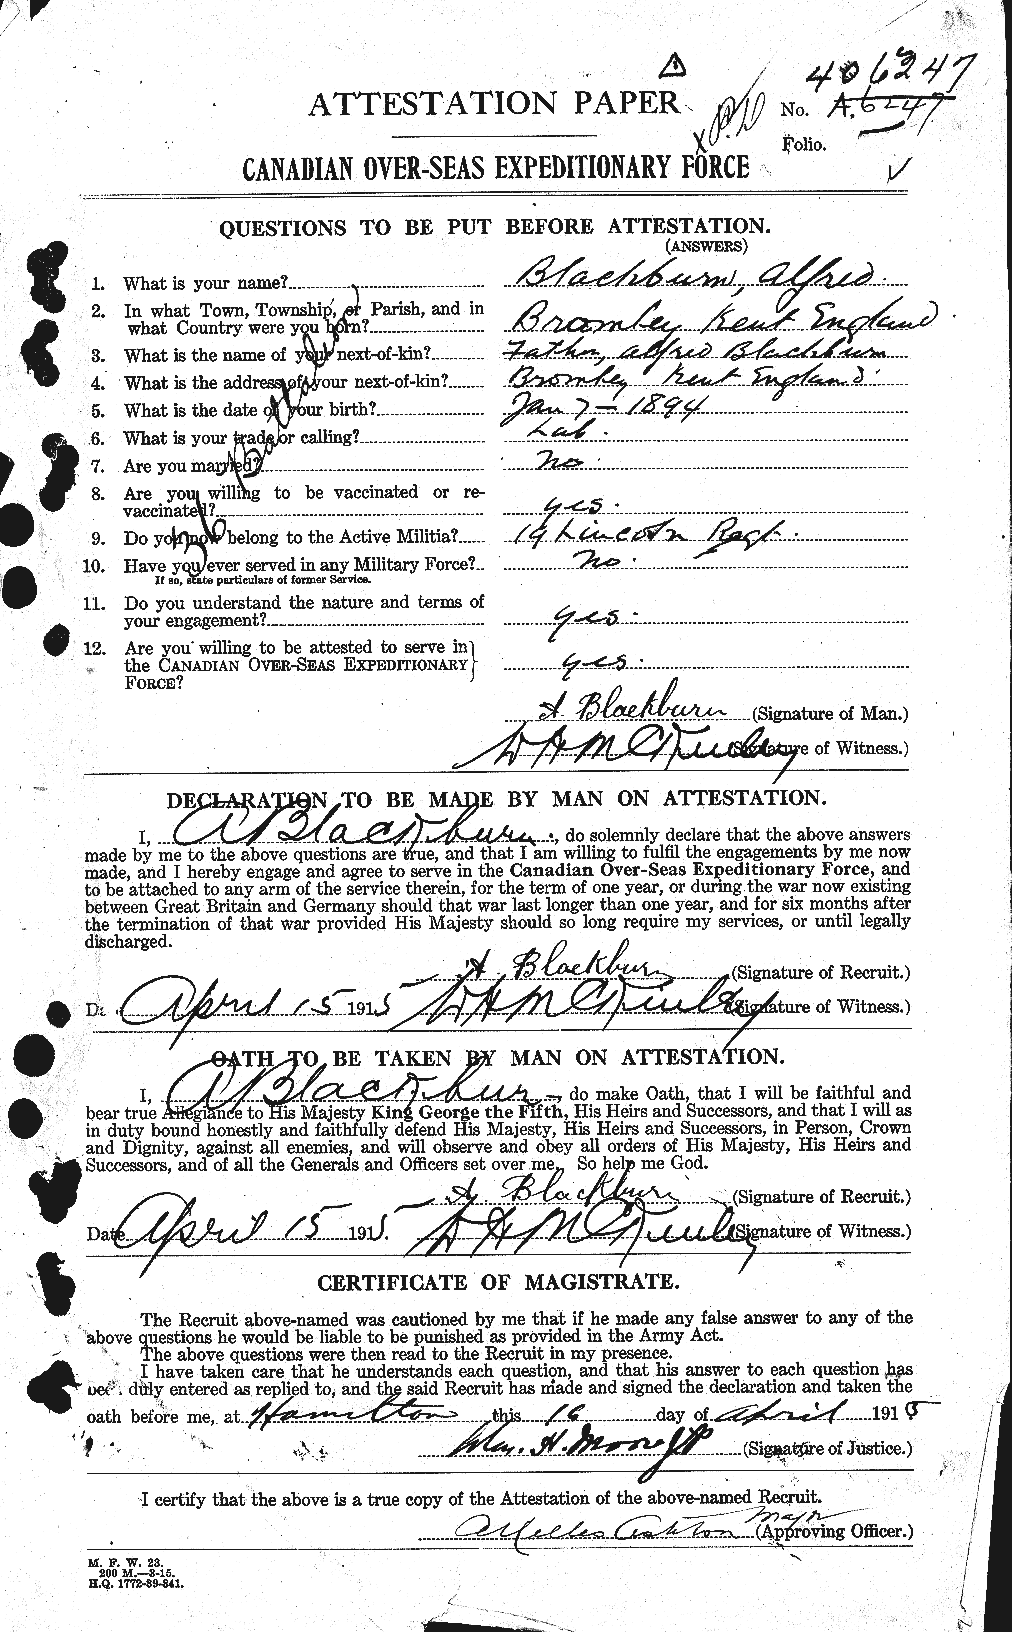 406247
ATTESTATION PAPER
No. A.6247
Folio.
CANADIAN OVER-SEAS EXPEDITIONARY FORCE
QUESTIONS TO BE PUT BEFORE ATTESTATION.
(ANSWERS)
36 Battalion
1. What is your name? Blackburn, Alfred.
2. In what Town, Township, or Parish, and in
what Country were you born? Bromley Kent England
3. What is the name of your next-of-kin? Father, Alfred Blackburn
4. What is the address of your next-of-kin? Bromley Kent England.
5. What is the date of your birth? Jan 7 - 1894
6. What is your trade or calling? Lab.
7. Are you married? no.
8. Are you willing to be vaccinated or re-
vaccinated? yes.
9. Do you now belong to the Active Militia? 19 Lincoln Regt.
10. Have you ever served in any Military Force? No.
If so, state particulars of former Service.
11. Do you understand the nature and terms of
your engagement? yes.
12. Are you willing to be attested to serve in
the CANADIAN OVER-SEAS EXPEDITIONARY yes.
FORCE?
A Blackburn (Signature of Man.)
(Signature of Witness.)
DECLARATION TO BE MADE BY MAN ON ATTESTATION.
I, A Blackburn, do solemnly declare that the above answers
made by me to the above questions are true, and that I am willing to fulfil the engagements by me now
made, and I hereby engage and agree to serve in the Canadian Over-Seas Expeditionary Force, and
to be attached to any arm of the service therein, for the term of one year, or during the war now existing
between Great Britain and Germany should that war last longer than one year, and for six months after
the termination of that war provided His Majesty should so long require my services, or until legally
discharged.
A Blackburn (Signature of Recruit.)
Da April 15 1915 (Signature of Witness.)
OATH TO BE TAKEN BY MAN ON ATTESTATION.
I, A Blackburn, do make Oath, that I will be faithful and
bear true Allegiance to His Majesty King George the Fifth, His Heirs and Successors, and that I will as
in duty bound honestly and faithfully defend His Majesty, His Heirs and Successors, in Person, Crown
and Dignity, against all enemies, and will observe and obey all orders of His Majesty, His Heirs and
Successors, and of all the Generals and Officers set over me. So help me God.
A Blackburn (Signature of Recruit.)
Date April 15 1915. (Signature of Witness.)
CERTIFICATE OF MAGISTRATE.
The Recruit above-named was cautioned by me that if he made any false answer to any of the
above questions he would be liable to be punished as provided in the Army Act.
The above questions were then read to the Recruit in my presence.
I have taken care that he understands each question, and that his answer to each question has
been duly entered as replied to, and the said Recruit has made and signed the declaration and taken the
oath before me, at Hamilton this 16 day of April 1915
Wm. H. Moore JP (Signature of Justice.)
I certify that the above is a true copy of the Attestation of the above-named Recruit.
Ashton Major (Approving Officer.)
M. F. W. 23.
200 M.—3-15.
H.Q. 1772-39-841.